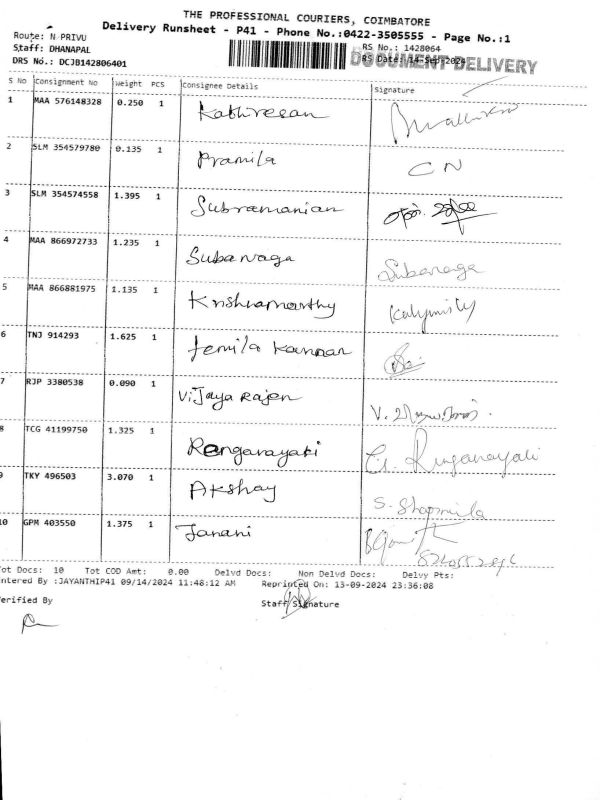 THE PROFESSIONAL COURIERS, COIMBATORE
Delivery Runsheet - P41 - Phone No.:0422-3505555 - Page No.:1
Route: N PRIVU
Staff: DHANAPAL
DRS No.: DCJB142806401
RS No.: 1428064
RS Date: 14-Sep-2024
DOCUMENT DELIVERY
S No Consignment No Weight PCS Consignee Details Signature
1 MAA 576148328 0.250 1 Kathiresan
2 SLM 354579780 0.135 1 Pramila CN
3 SLM 354574558 1.395 1 Subramanian
4 MAA 866972733 1.235 1 Subanaga Subanaga
5 MAA 866881975 1.135 1 Krishnamorthy
6 TNJ 914293 1.625 1 Jemila Kannan
7 RJP 3380538 0.090 1 Vijaya Rajen V.
8 TCG 41199750 1.325 1 Renganayaki G. Renganayaki
9 TKY 496503 3.070 1 Akshay S. Sharmila
10 GPM 403550 1.375 1 Janani
Tot Docs: 10 Tot COD Amt: 0.00 Delvd Docs: Non Delvd Docs: Delvy Pts:
Entered By :JAYANTHIP41 09/14/2024 11:48:12 AM Reprinted On: 13-09-2024 23:36:08
Verified By Staff Signature